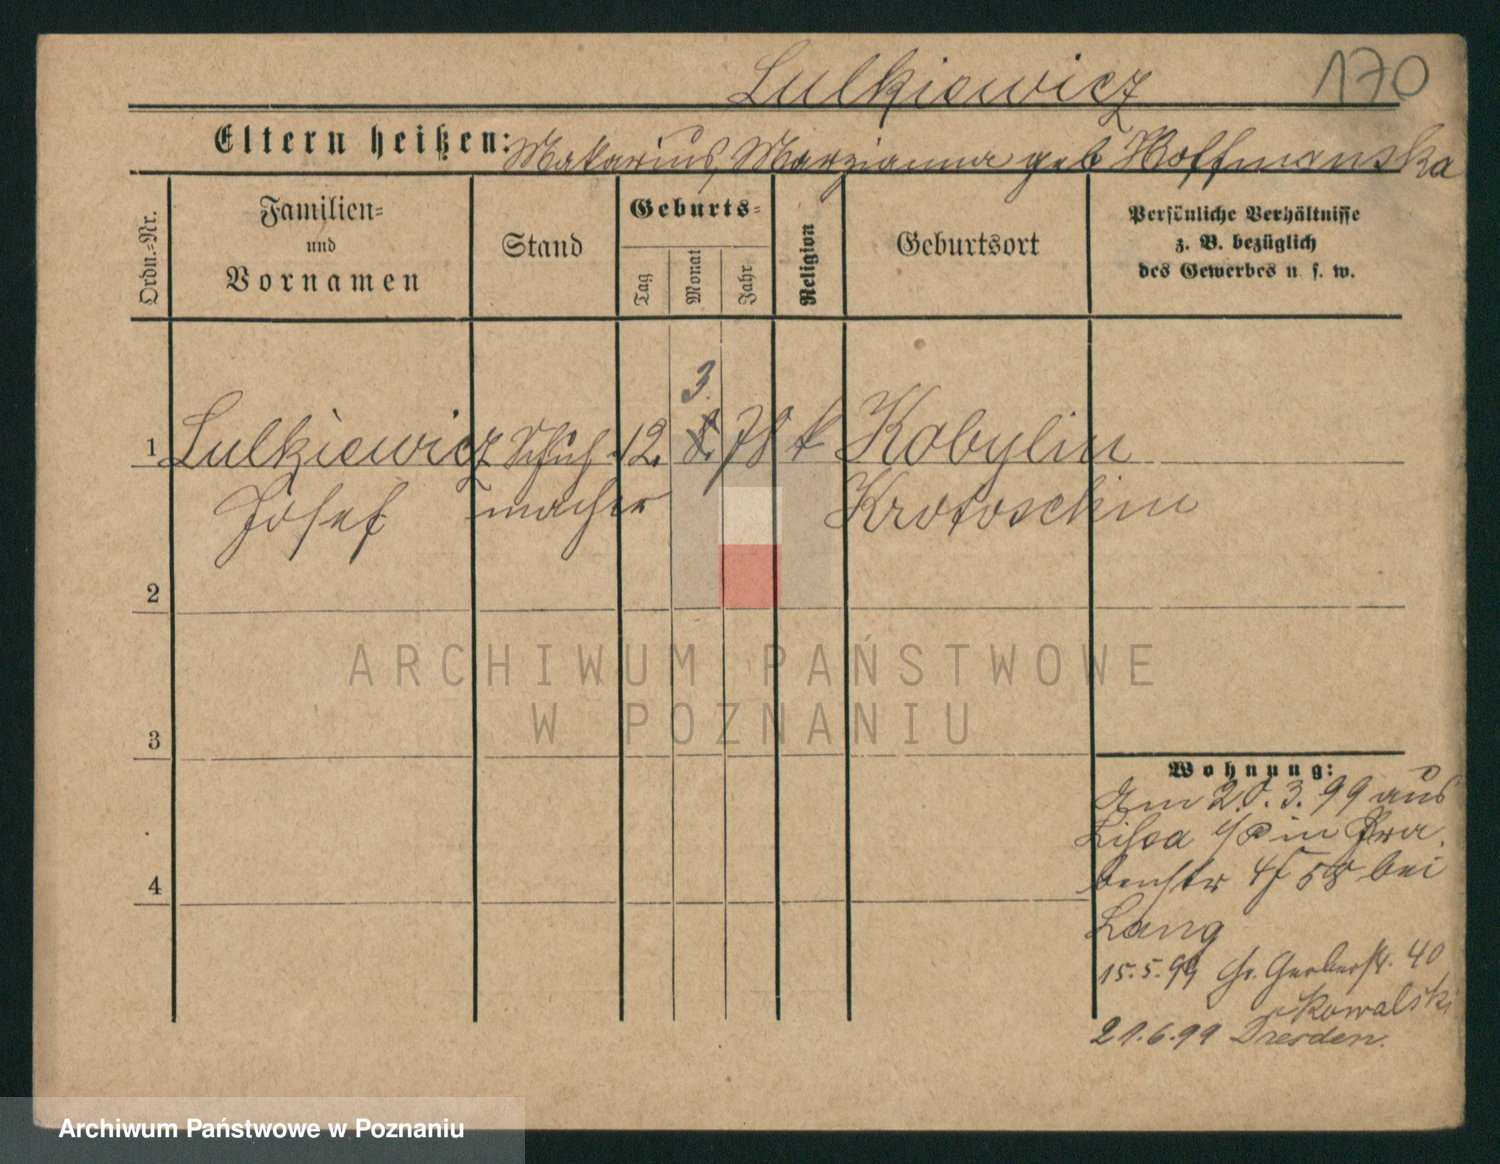 Lulkiewicz 170
Eltern heißen: Makarius, Marzianna geb Hoffmanska
Ordn.-Nr.
Familien-
und
Vornamen
Stand
Geburts-
Tag
Monat
Jahr
Religion
Geburtsort
Persönliche Verhältnisse
z. B. bezüglich
des Gewerbes u. s. w.
3.
1 Lulkiewicz Schuh- 12. 8. 78 k Kobylin
Josef macher Krotoschin
2
ARCHIWUM PAŃSTWOWE
W POZNANIU
3
Wohnung:
Am 20.3.99 aus
Lissa in
4
bei
Lang
15.5.99 Gr. Gerberstr. 40
Kowalski
21.6.99 Dresden.
Archiwum Państwowe w Poznaniu